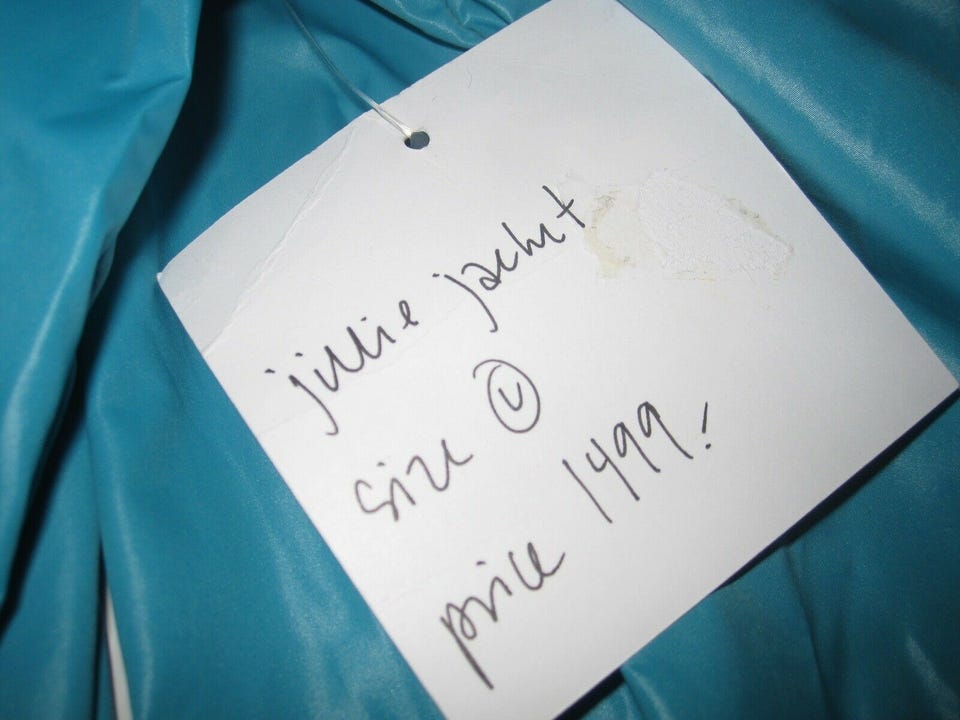 jillie jacket
size
price 1499.